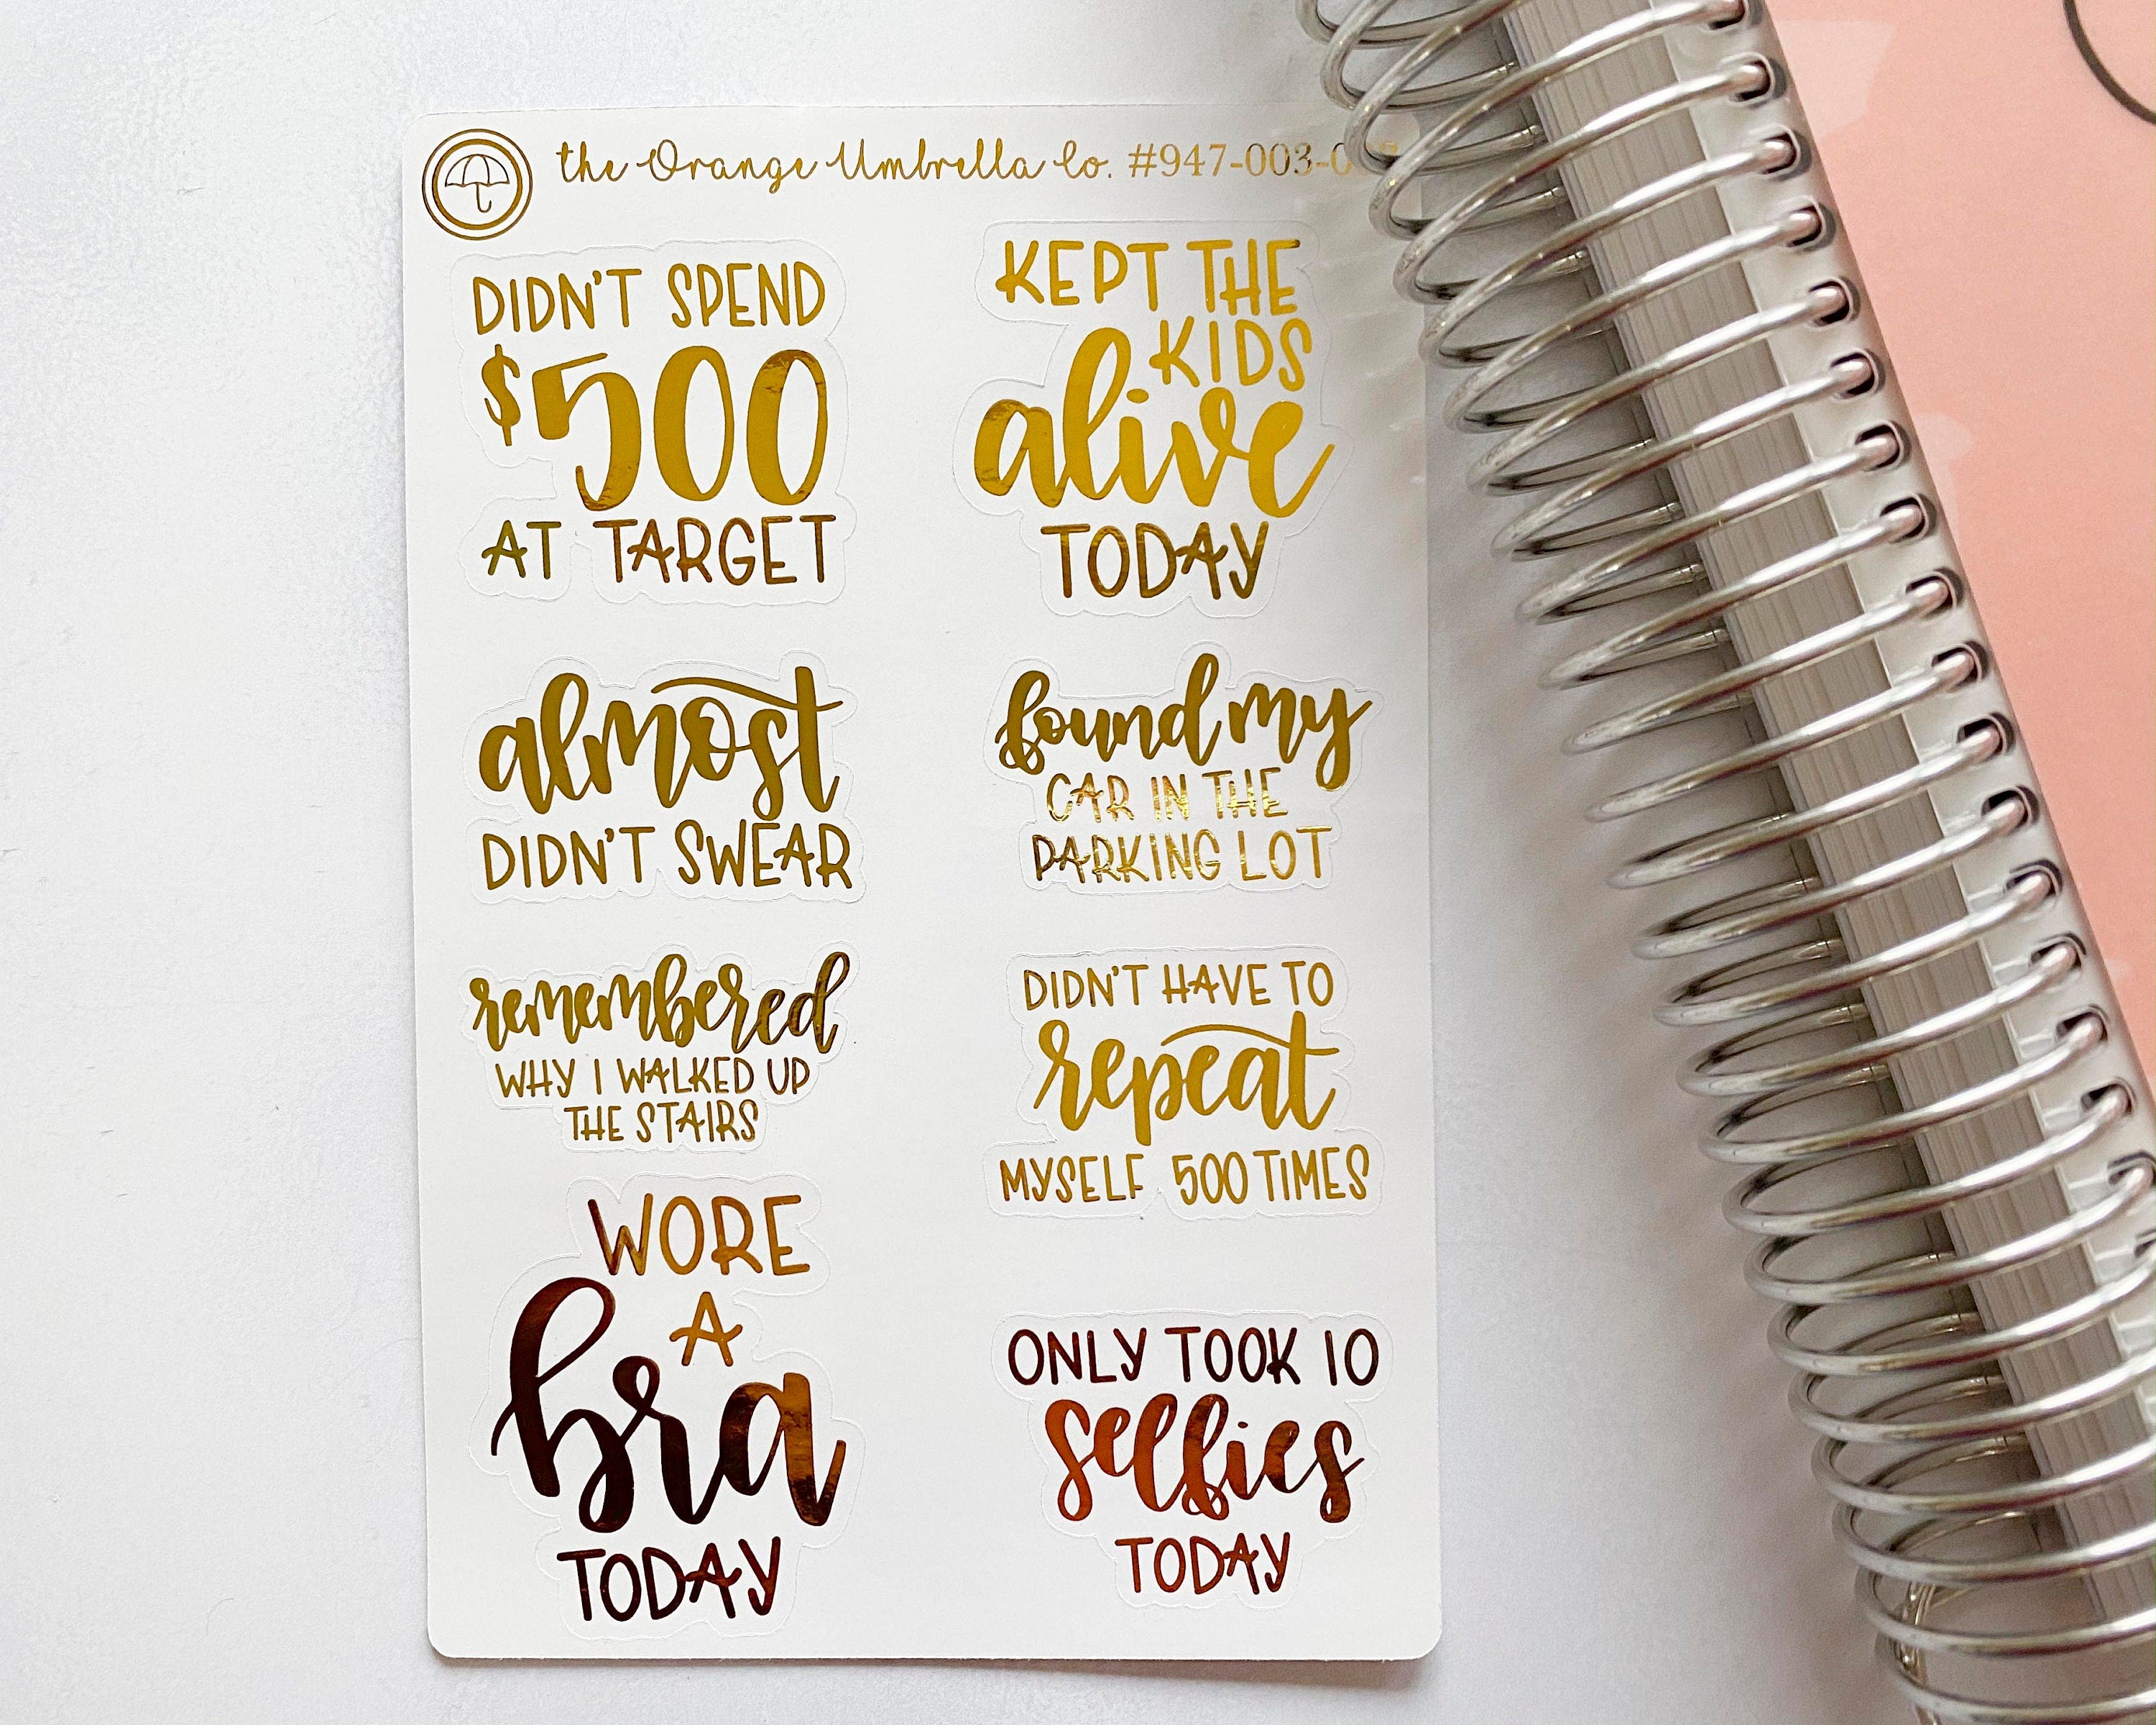 the Orange Umbrella Co. #947-003-
DIDN'T SPEND
$500
AT TARGET
KEPT THE
KIDS
alive
TODAY
almost
DIDN'T SWEAR
found my
CAR IN THE
PARKING LOT
remembered
WHY I WALKED UP
THE STAIRS
DIDN'T HAVE TO
repeat
MYSELF 500 TIMES
WORE
A
bra
TODAY
ONLY TOOK 10
selfies
TODAY